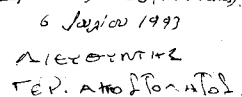 6 Ιουλίου 1993
ΔΙΕΥΘΥΝΤΗΣ
ΓΕΡ. ΑΠΟΣΤΟΛΑΤΟΣ